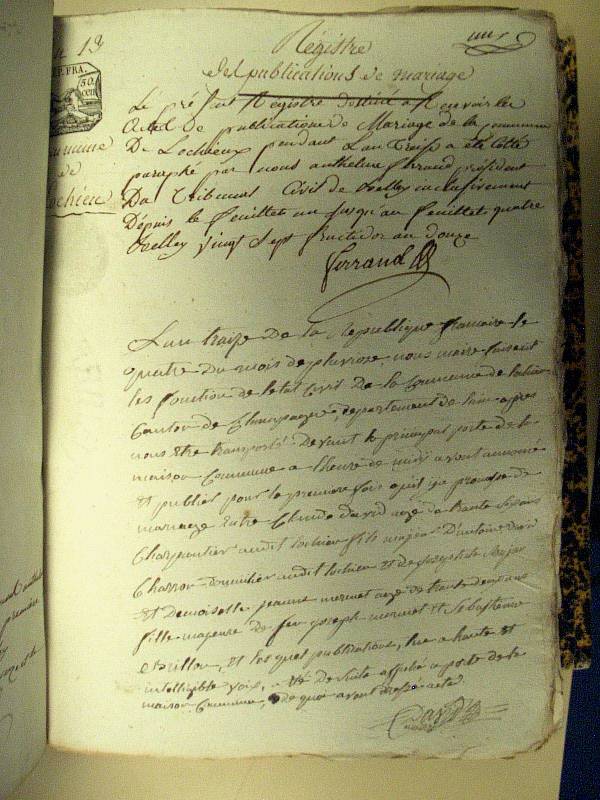 n 13
Registre
un
P. FRA.
50
cen
Des publications de mariage
Le présent Registre destiné a Recevoir les
Actes de publication de Mariage de la commune
De Lochieux pendant Lan Treize a été Cotté
paraphé par nous anthelme ferrand président
Du Tribunal Civil de Belley inclusivement
Dépuis le feuillet un Jusqu'au feuillet quatre
Belley Vingt Sept fructidor an douze
ferrand
Commune
de
Lochieu
Lan traize De la République francaise le
quatre Du mois de pluviose, nous maire faisent
les fonction de letat Civil De la Commune de lochieu
Canton de Champagne, departement de lain apres
nous Etre transporté Devant la principal porte de la
maison Commune a lheure de midi avont annoncé
Et publiet pour la premiere fois quil ya promesse de
mariage Entre Claude david agé de trante
Charpantier audit lochieu fils majeur D'antoine david
Charron domicilier audit lochieu Et de
Et Demoiselle jeanne mermet agé de trante deux ans
fille majeure De feu joseph mermet Et Sebastienne
Brillon, Et les quel publications, lue a haute Et
intelligible voix, a Eté De Suite affiché a porte de la
maison Commune, de quoi avont dressé acte.
David
premiere